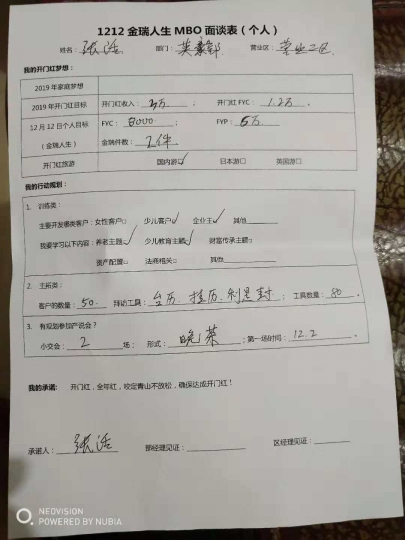 1212 金瑞人生 MBO 面谈表（个人）
姓名： 张活 部门： 英豪部 营业区： 营业二区
我的开门红梦想：
2019 年家庭梦想
2019 年开门红目标 开门红收入： 3万 ； 开门红 FYC： 1.2万 。
12 月 12 日个人目标 FYC： 8000 ； FYP： 5万 。
（金瑞人生） 金瑞件数： 2件 。
开门红旅游 国内游☑ 日本游□ 英国游□
我的行动规划：
1. 训练类：
主要开发哪类客户：女性客户□ 少儿客户☑ 企业主☑ 其他
我要学习以下内容：养老主题☑ 少儿教育主题☑ 财富传承主题□
资产配置□ 法商相关□ 其他
2. 主拓类：
客户的数量： 50 ． 拜访工具： 台历、挂历、利是封 ；工具数量： 80 。
3. 有规划参加产说会？
小交会： 2 场； 形式： 晚茶 ；第一场时间： 12.2 。
我的承诺： 开门红，全年红，咬定青山不放松，确保达成开门红！
承诺人： 张活 部经理见证： 区经理见证：
NEOVISION
POWERED BY NUBIA